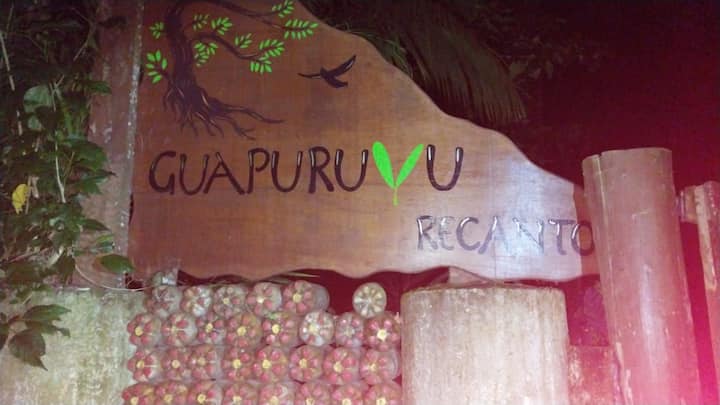 GUAPURUVU
RECANTO